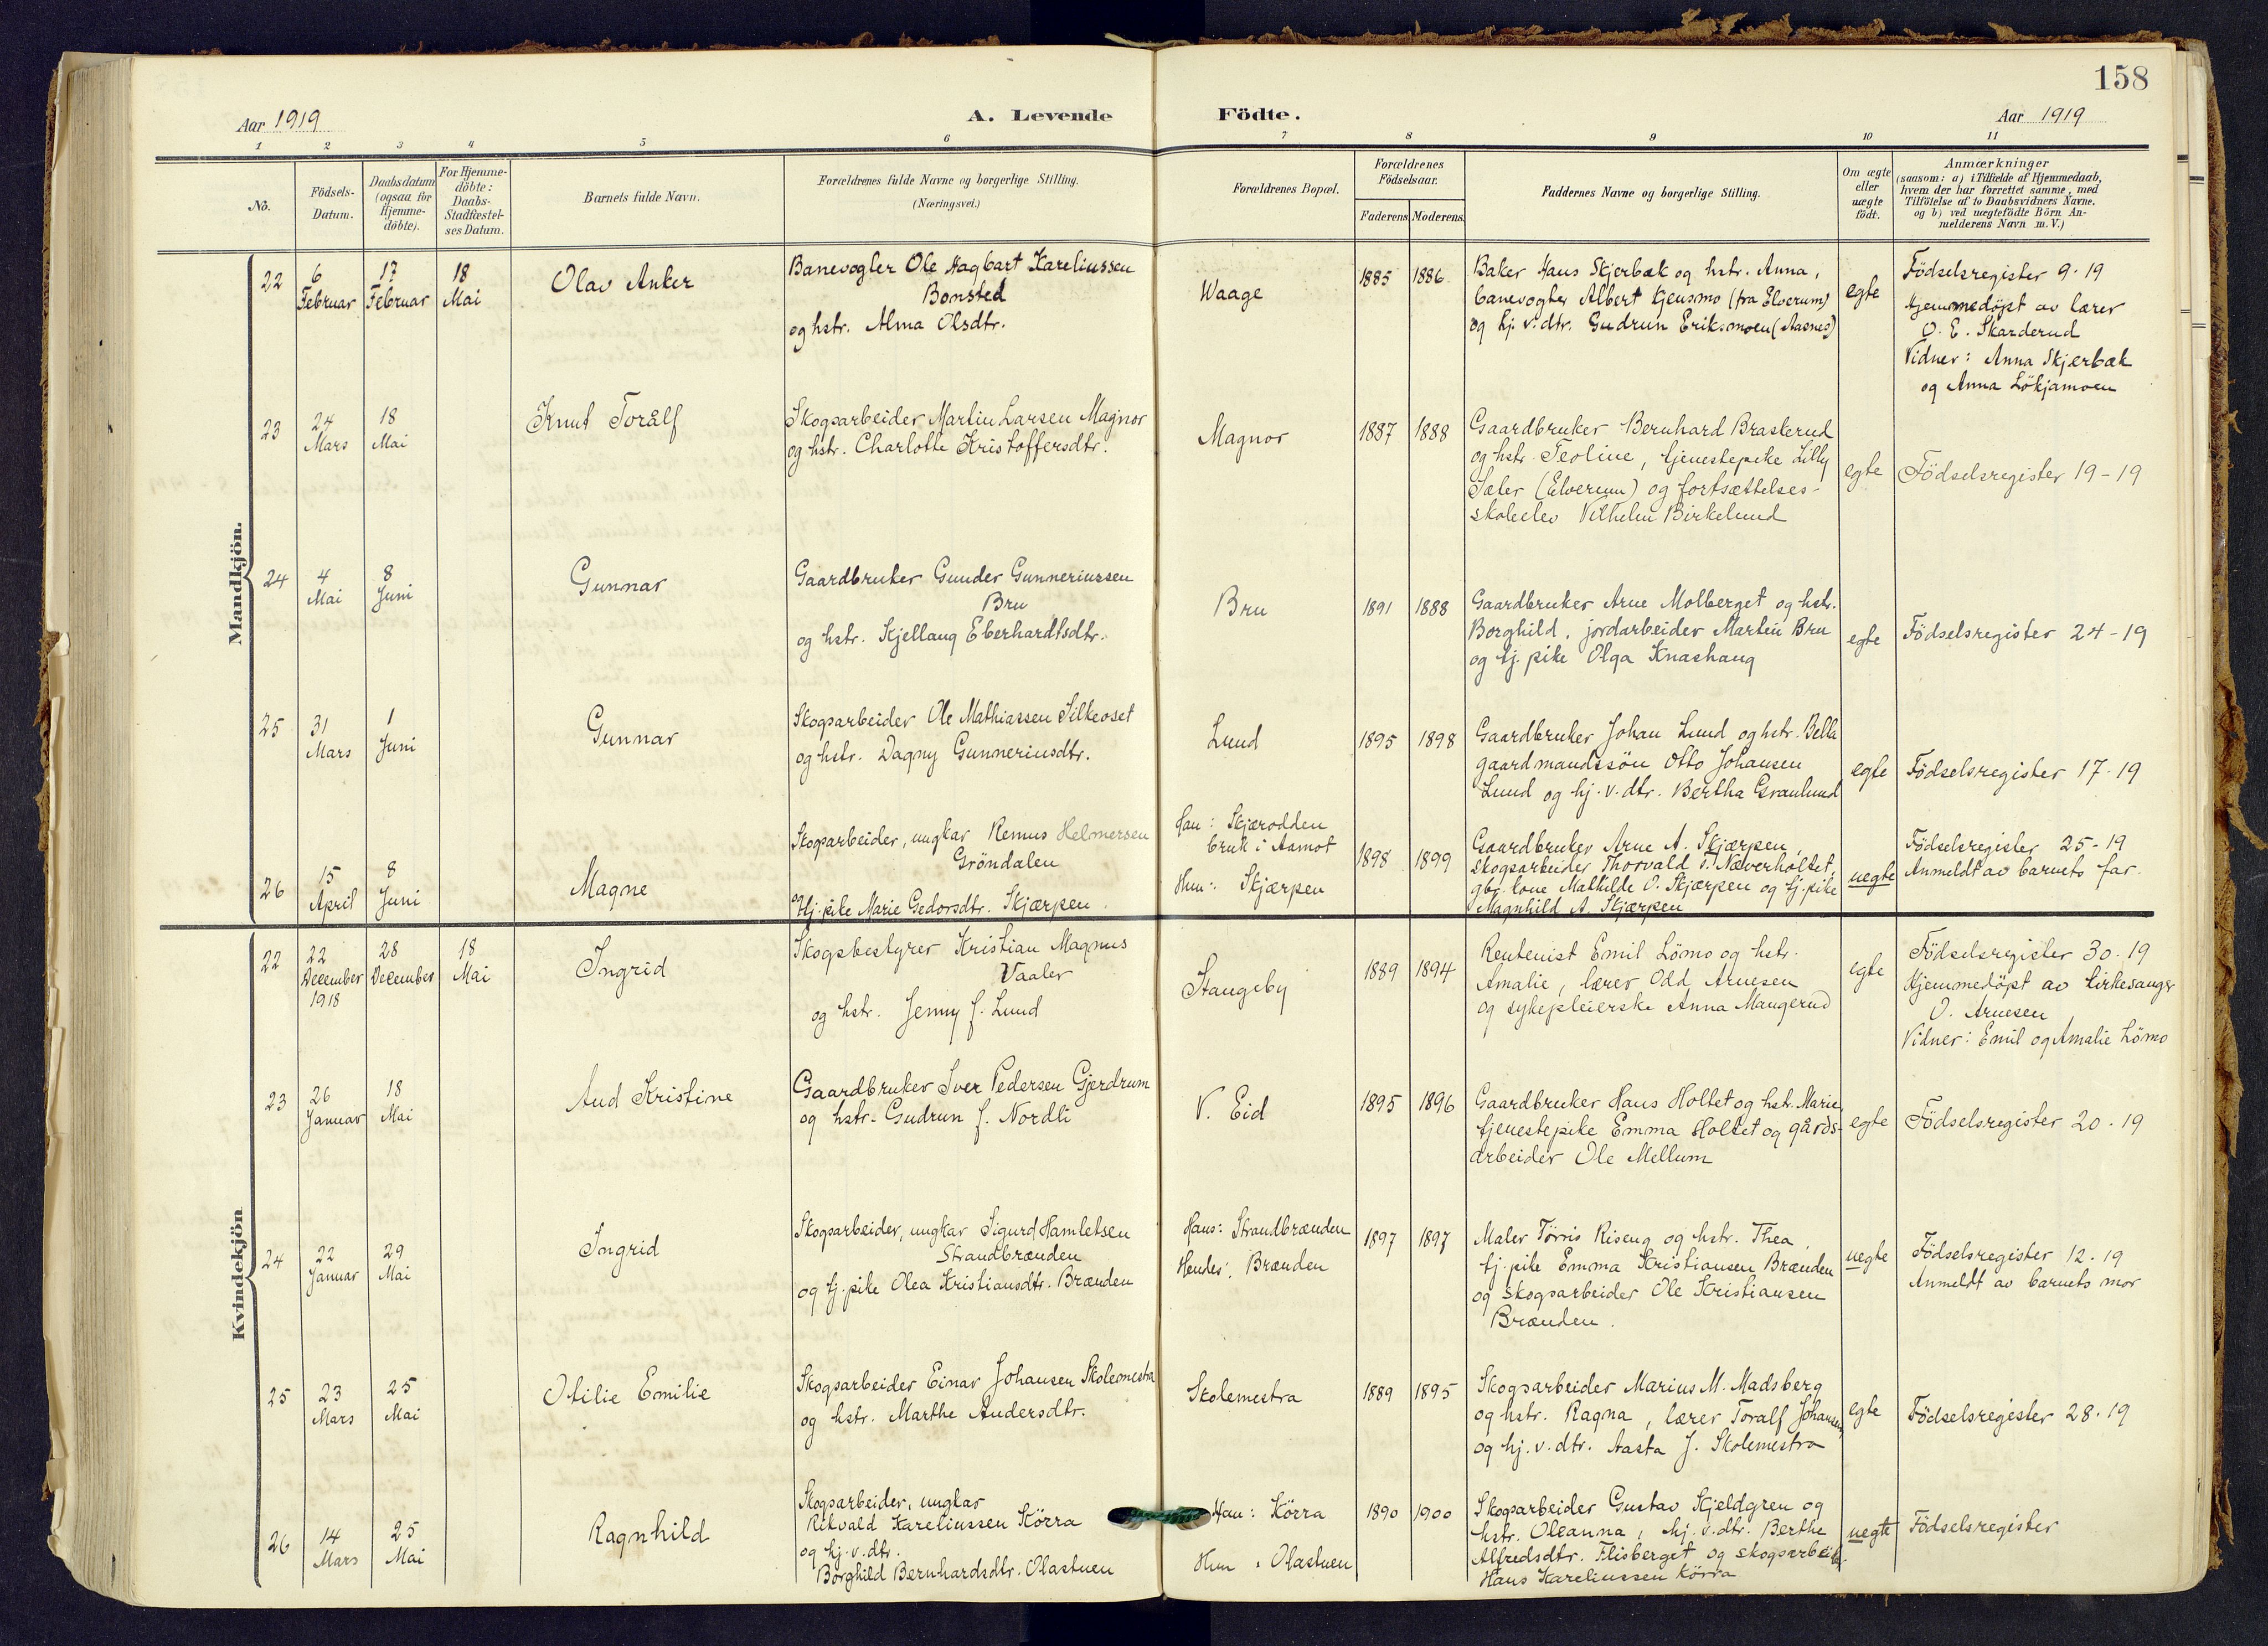 158
Aar 1919
A. Levende Födte.
Aar 1919
1 2 3 4 5 6 7 8 9 10 11
No.
Födsels-
Datum.
Daabsdatum
(ogsaa for
Hjemme-
döbte).
For Hjemme-
döbte:
Daabs-
Stadfæstel-
ses Datum.
Barnets fulde Navn.
Forældrenes fulde Navne og borgerlige Stilling.
(Næringsvei.)
Forældrenes Bopæl.
Forældrenes
Födselsaar.
Faderens Moderens
Faddernes Navne og borgerlige Stilling.
Om ægte
eller
uægte
födt.
Anmærkninger
(saasom: a) i Tilfælde af Hjemmedaab,
hvem der har forrettet samme, med
Tilföielse af to Daabsvidners Navne,
og b) ved uægtefödte Börn An-
melderens Navn m. V.)
Mandkjön.
22
6
Februar
17
Februar
18
Mai
Olav Anker
Banevogter Ole Hagbart Kareliussen
Bonsted
og hstr. Alma Olsdtr.
Waage
1885 1886
Baker Hans Skjerbæk og hstr. Anna,
banevogter Albert Kjensmo (fra Elverum)
og hj. v. dtr. Gudrun Eriksmoen (Aasnes)
egte
Födselsregister 9-19
Hjemmedöpt av lærer
O. E. Skarderud
Vidner: Anna Skjærbæk
og Anna Lökjamoen
23
24
Mars
18
Mai
Knut Torålf
Skogsarbeider Martin Larsen Magnor
og hstr. Charlotte Kristoffersdtr.
Magnor
1887 1888
Gaardbruker Bernhard Brasterud
og hstr. Teoline, tjenestepike Lilly
Sæter (Elverum) og fortsættelses-
skoleelev Vilhelm Birkelund
egte
Födselsregister 19-19
24
4
Mai
8
Juni
Gunnar
Gaardbruker Gunder Gunneriussen
Bru
og hstr. Kjellaug Eberhardtsdtr.
Bru
1891 1888
Gaardbruker Arne Molberget og hstr.
Borghild, jordarbeider Martin Bru
og tj. pike Olga Knashaug
egte
Födselsregister 24-19
25
31
Mars
1
Juni
Gunnar
Skogsarbeider Ole Mathiassen Silkeoset
og hstr. Dagny Gunneriusdtr.
Lund
1895 1898
Gaardbruker Johan Lund og hstr. Bella
gaardmandssön Otto Johansen
Lund og hj. v. dtr. Bertha Granlund
egte
Födselsregister 17-19
26
15
April
8
Juni
Magne
Skogsarbeider, ungkar Remus Helmersen
Gröndalen
og tj. pike Marie Gedorsdtr. Skjærpen.
Han: Skjærodden
bruk i Aamot
Hun: Skjærpen
1898 1899
Gaardbruker Arne A. Skjærpen,
skogsarbeider Thorvald T. Næverholtet,
gbr. kone Mathilde O. Skjærpen og tj. pike
Magnhild A. Skjærpen
uegte
Födselsregister 25-19
Anmeldt av barnets far.
Kvindekjön
22
22
December
1918
28
December
18
Mai
Ingrid
Skogsbestyrer Kristian Magnus
Vaaler
og hstr. Jenny f. Lund
Stangeby
1889 1894
Rentenist Emil Lömo og hstr.
Amalie, lærer Odd Arnesen
og sykepleierske Anna Maugerud
egte
Födselsregister 30-19
Hjemmedöpt av kirkesanger
O. Arnesen
Vidner: Emil og Amalie Lömo
23
26
Januar
18
Mai
Aud Kristine
Gaardbruker Iver Pedersen Gjerdrum
og hstr. Gudrun f. Nordli
V. Eid
1895 1896
Gaardbruker Hans Holtet og hstr. Marie,
tjenestepike Emma Holtet og gårds-
arbeider Ole Mellum
egte
Födselsregister 20-19
24
22
Januar
29
Mai
Ingrid
Skogsarbeider, ungkar Sigurd Hamletsen
Strandbrænden
og tj. pike Olea Kristiansdtr. Brænden
Hans: Strandbrænden
Hendes: Brænden
1897 1897
Maler Törris Riseng og hstr. Thea,
tj. pike Emma Kristiansen Brænden
og skogsarbeider Ole Kristiansen
Brænden.
uegte
Födselsregister 12-19
Anmeldt av barnets mor
25
23
Mars
25
Mai
Otilie Emilie
Skogsarbeider Einar Johansen Skolemestra
og hstr. Marthe Andersdtr.
Skolemestra
1889 1895
Skogsarbeider Marius M. Madsberg
og hstr. Ragna, lærer Toralf Johansen
og hj. v. dtr. Aasta J. Skolemestra
egte
Födselsregister 28-19
26
14
Mars
25
Mai
Ragnhild
Skogsarbeider, ungkar
Rikvald Kareliussen Körra
og hj. v. dtr.
Borghild Bernhardsdtr. Olastuen
Han: Körra
Hun: Olastuen
1890 1900
Skogsarbeider Gustav Kjeldgren og
hstr. Oleanna, hj. v. dtr. Berthe
Alfredsdtr. Flisberget og skogsarbeid.
Hans Kareliussen Körra
uegte
Födselsregister